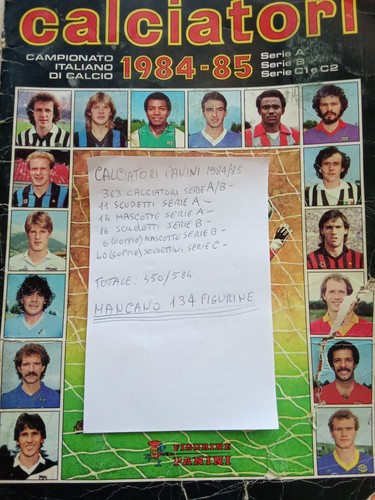 calciatori
CAMPIONATO
ITALIANO
DI CALCIO
1984-85
Serie A
Serie B
Serie C1 e C2
CALCIATORI PANINI 1984/85
363 CALCIATORI SERIE A/B-
11 SCUDETTI SERIE A-
14 MASCOTTE SERIE A-
16 SCUDETTI SERIE B-
6 (DOPPIO) MASCOTTE SERIE B-
40 (DOPPIE) SCUDETTINI SERIE C-
TOTALE: 450/584
MANCANO 134 FIGURINE
FIGURINE
PANINI